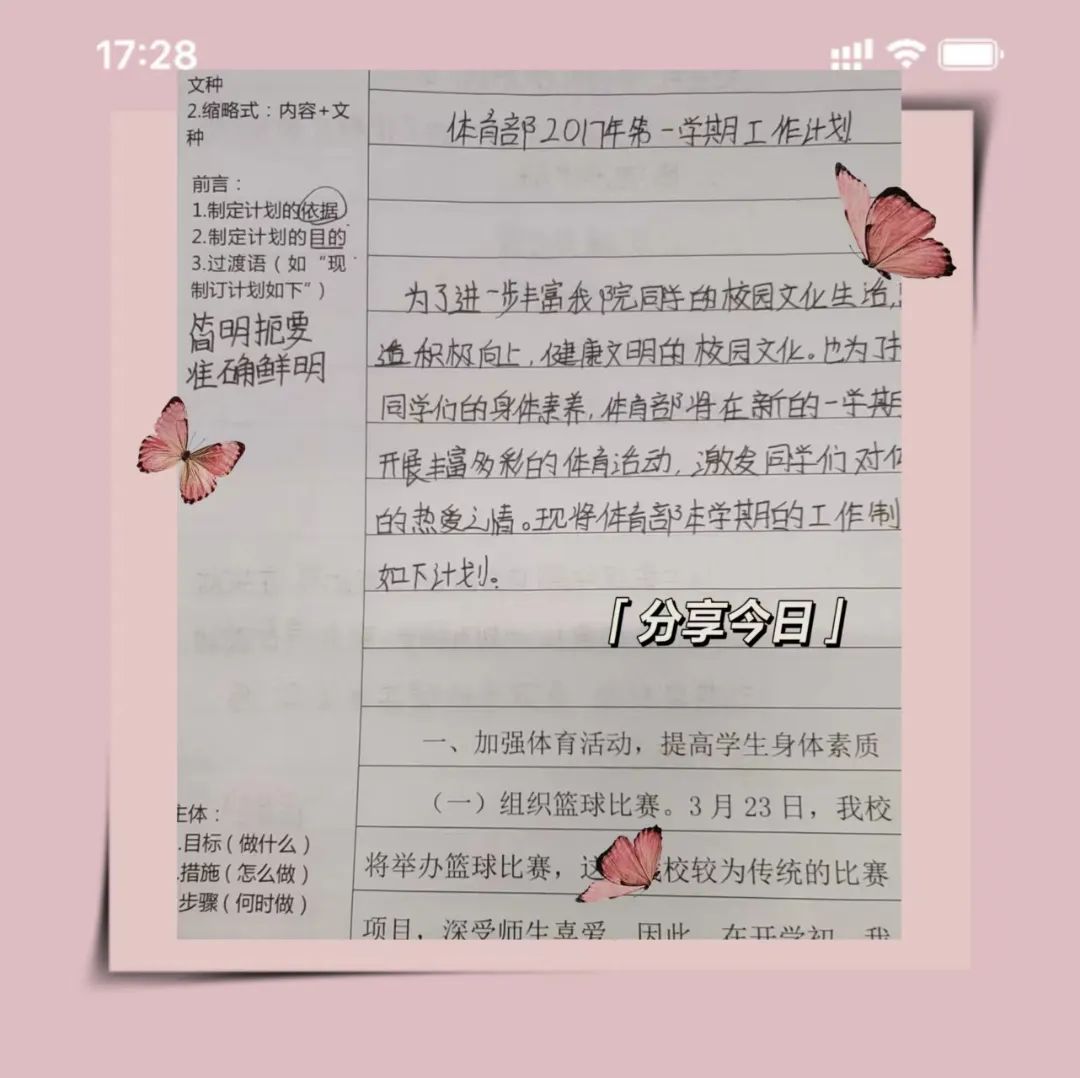 17:28
文种
2.缩略式：内容+文
种
前言：
1.制定计划的依据
2.制定计划的目的
3.过渡语（如“现
制订计划如下”）
简明扼要
准确鲜明
主体：
.目标（做什么）
.措施（怎么做）
步骤（何时做）
体育部2017年第一学期工作计划
为了进一步丰富我院同学的校园文化生活，
造积极向上，健康文明的校园文化。也为了
同学们的身体素养，体育部将在新的一学期
开展丰富多彩的体育活动，激发同学们对
的热爱之情。现将体育部本学期的工作制
如下计划。
「分享今日」
一、加强体育活动，提高学生身体素质
（一）组织篮球比赛。3月23日，我校
将举办篮球比赛，这 校较为传统的比赛
项目，深受师生喜爱。因此，在开学初，我